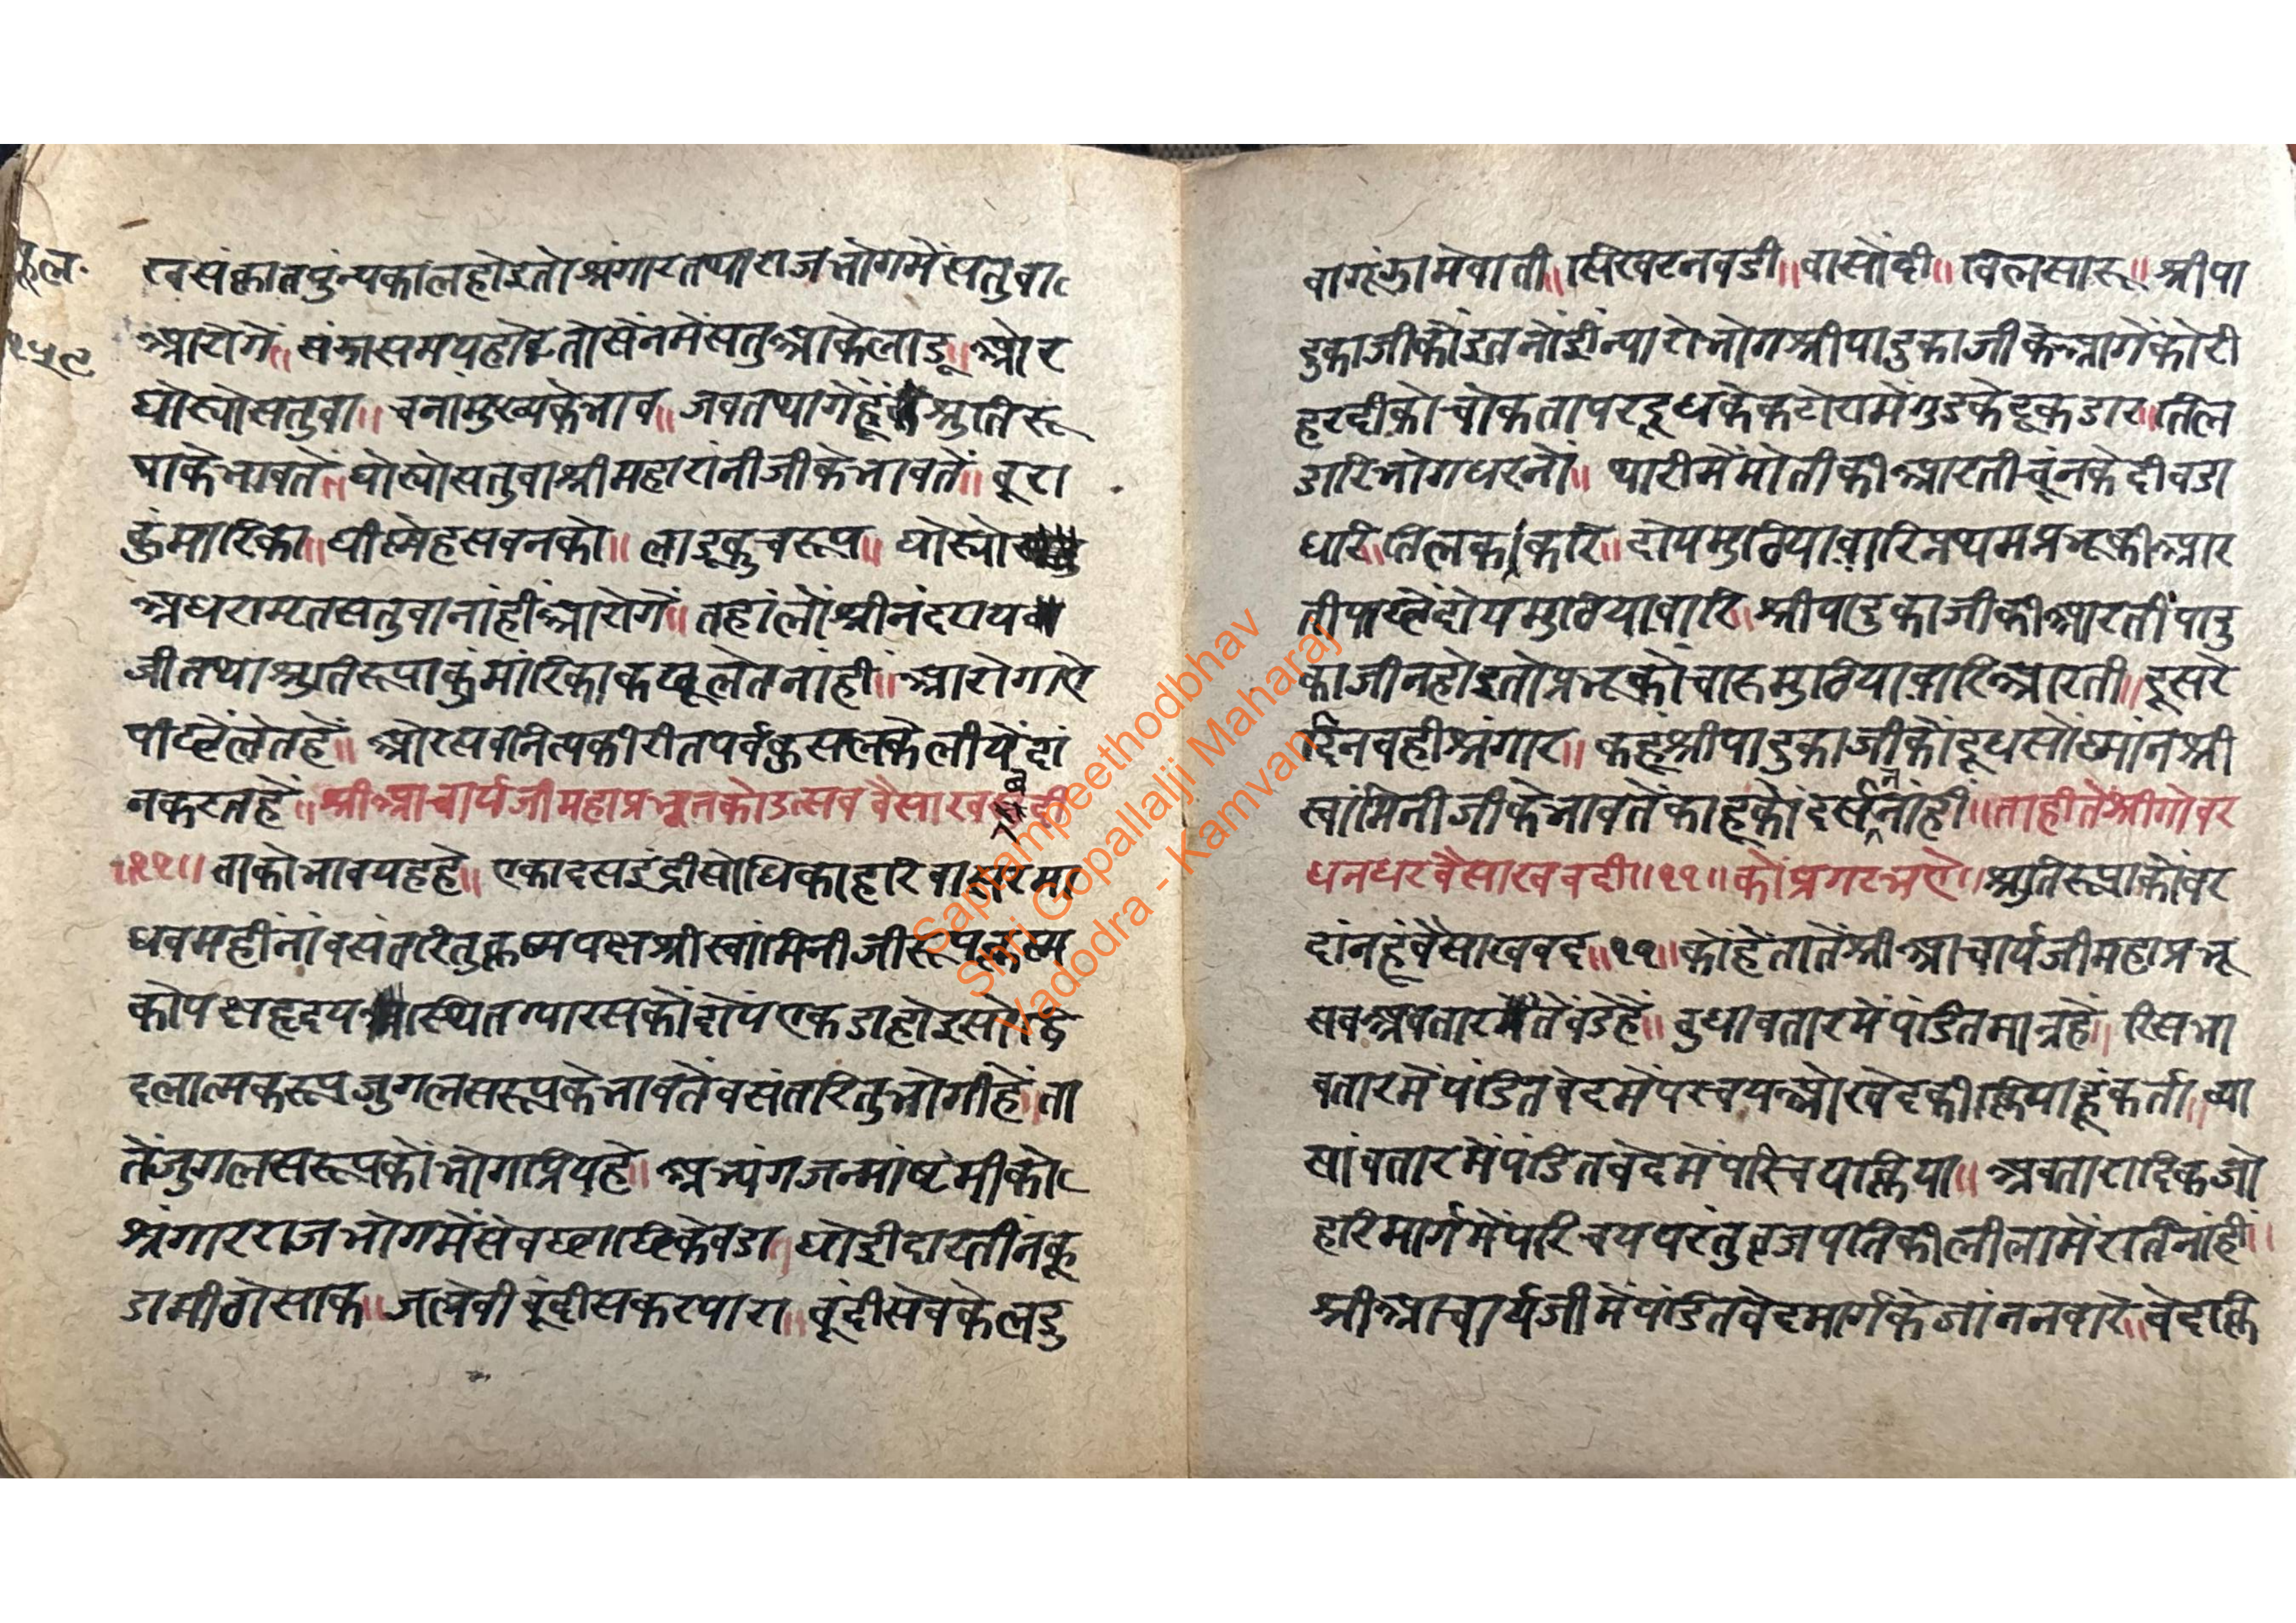 फूल.
१५९
रवसंक्रातपुंन्यकालहोइतोश्रंगारतथाराजभोगमेंसतुवा
आरोगें॥ संझासमयहोइतोसेंनमेंसतुआकेलाडू॥ओर
घोस्योसतुवा॥ चनामुख्यकेभाव॥ जवतथागेहूं श्रुतिरू
पाकेभावतें घोस्योसतुवाश्रीमहारांनीजीकेभावतें॥ बूरा
कुंमारिका॥ घीस्नेहसवनको॥ लाडूकुचरूप॥ घोस्यो
अधरामृतसतुवानांहींआरोगें॥ तहांलोंश्रीनंदराय
जीतथाश्रुतिरूपाकुंमांरिकाकछूलेतनांहीं॥ आरोगाऐ
पीछेंलेतहें॥ ओरसवनित्यकीरीतपर्वकुसलकेलीयेंदां
नकरतहें॥श्रीआचार्यजीमहाप्रभूनकोउत्सववैसाखवदी
॥११॥ ताकोभावयहहे॥ एकादसइंद्रीसोधिकाहरिवासरमा
धवमहींनांवसंतरितुकृष्णपक्षश्रीस्वांमिनीजीरूपकृष्ण
कोपक्षहृदय स्थितग्यारसकोंदोंपएकडाहोइसो
दलात्मकरूपजुगलसरूपकेभावतेंवसंतरितुभोगीहें॥ता
तेंजुगलसरूपकोंभोगप्रियहे॥ अभ्यंगजन्मांष्टमीको
श्रंगारराजभोगमेंसेवछाछिकेवडा॥ धोईदारतींनकू
डामीठोसाक॥जलेवीबूंदीसकरपारा॥ बूंदीसेवकेलडु
वागूंझामेवाती॥सिखरनवडी॥वासोंदी॥ विलसारू॥ श्रीपा
दुकाजीकोंइतनोंईन्यारोभोगश्रीपादुकाजीकेआगेंकोरी
हरदीकोचोकतापरदूधकेकटोरामेंगुडकेटूकडार॥तिल
डारिभोगधरनों॥ थारीमेंमोतीकीआरतीचूंनकेदीवडा
धरि॥तिलक करि॥दोयमुठियावारिप्रथमप्रभूकीआर
तीपाछेंदोयमुठियावारि॥श्रीपादुकाजीकीआरतींपादु
काजीनहोइतोप्रभूकोंचारूमुठियावारिआरती॥ दूसरे
दिनवहीश्रंगार॥ कहूंश्रीपादुकाजीकोंदूधसोंस्नांनश्री
स्वांमिनीजीकेभावतेंकाहूकोंदर्सननांहीं॥ताहीतेंश्रीगोवर
धनधरवैसाखवदी॥११॥कोंप्रगटभऐ॥श्रुतिरूपाकोंवर
दांनहूंवैसाखवद॥११॥कोंहेंतातेंश्रीआचार्यजीमहाप्रभू
सबअवतारमेंतेंवडेहें॥ वुधावतारमेंपंडितमात्रहें॥ रिसभा
वतारमेंपंडितवेदमेंपरचयओरवेदकीक्रियाहूंकर्ता॥व्या
सांवतारमेंपंडितवेदमेंपरिचयक्रिया॥ अवतारादिकओ
हरिमार्गमेंपरिचयपरंतुव्रजपतिकीलीलामेंरतिनांहीं॥
श्रीआचार्यजीमेंपंडितवेदमार्गकेजांननवारे॥वेदक्रि